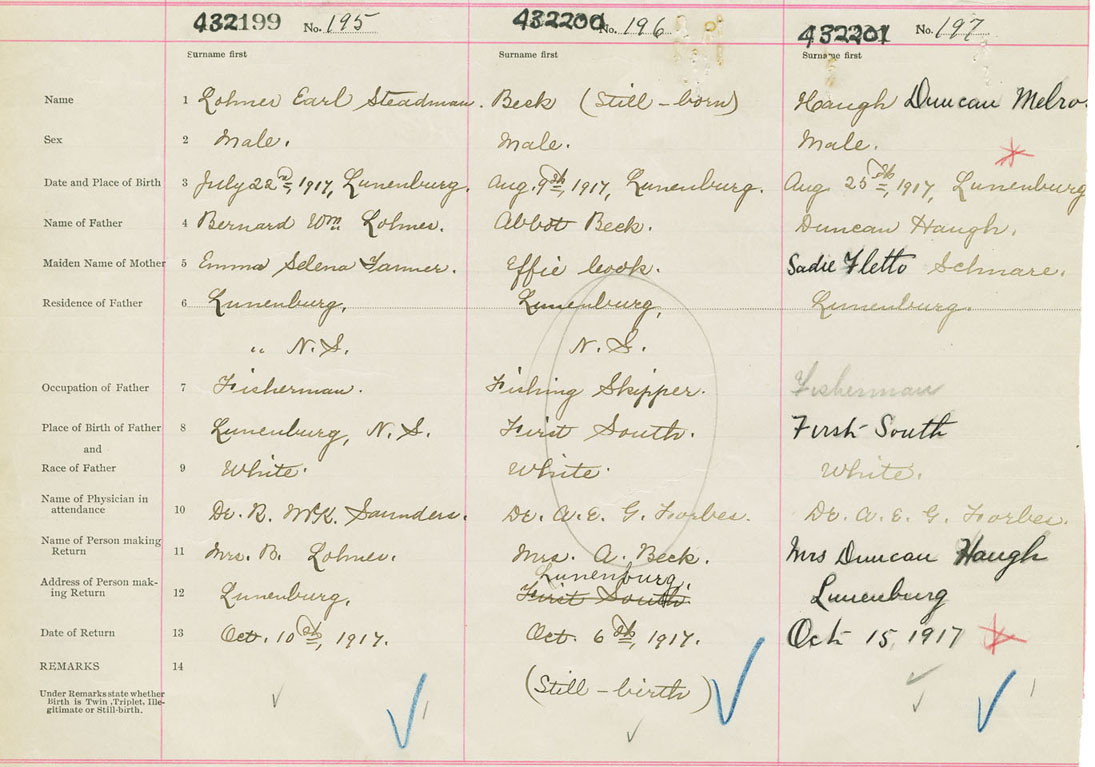 432199 No. 195 432200 No. 196 432201 No. 197
Surname first Surname first Surname first
Name 1 Lohnes Earl Steadman. Beck (Still-born) Haugh Duncan Melro
Sex 2 Male. Male. Male.
Date and Place of Birth 3 July 22nd, 1917, Lunenburg. Aug. 9th, 1917, Lunenburg. Aug 25th, 1917, Lunenburg
Name of Father 4 Bernard Wm. Lohnes. Abbot Beck. Duncan Haugh.
Maiden Name of Mother 5 Emma Selena Farmer. Effie Cook. Sadie Fletto Schnare.
Residence of Father 6 Lunenburg, Lunenburg, Lunenburg.
" N.S. N.S.
Occupation of Father 7 Fisherman. Fishing Skipper. Fisherman
Place of Birth of Father 8 Lunenburg, N.S. First South. First South
and
Race of Father 9 White. White. White.
Name of Physician in
attendance 10 Dr. R. McK. Saunders. Dr. A. E. G. Forbes. Dr. A. E. G. Forbes.
Name of Person making
Return 11 Mrs. B. Lohnes. Mrs. A. Beck. Mrs Duncan Haugh
Lunenburg.
Address of Person mak-
ing Return 12 Lunenburg. First South. Lunenburg
Date of Return 13 Oct. 10th, 1917. Oct. 6th, 1917. Oct 15, 1917
REMARKS 14
(Still-birth)
Under Remarks state whether
Birth is Twin, Triplet, Ille-
gitimate or Still-birth.